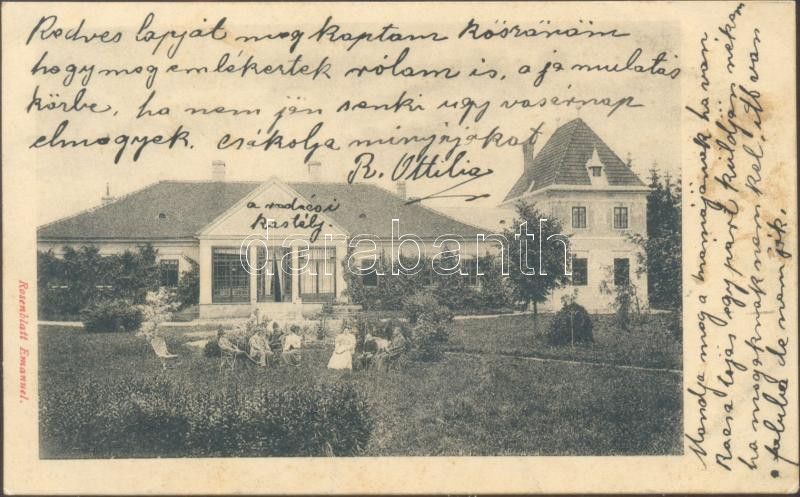 Kedves lapját megkaptam köszönöm
hogy megemlékertek rólam is, a ja mulatás
körbe, ha nem jön senki ugy vasárnap
elmegyek. csókolja mindnjájokat
R. Ottilia
a radnóti
kastélj.
darabanth
Rosenblatt Emanuel.
Mondja meg a mamájának ha van
Racz tojás egy párt küldjön nékem
ha magoknak nem kel, itt van
a faluba de nem jók.